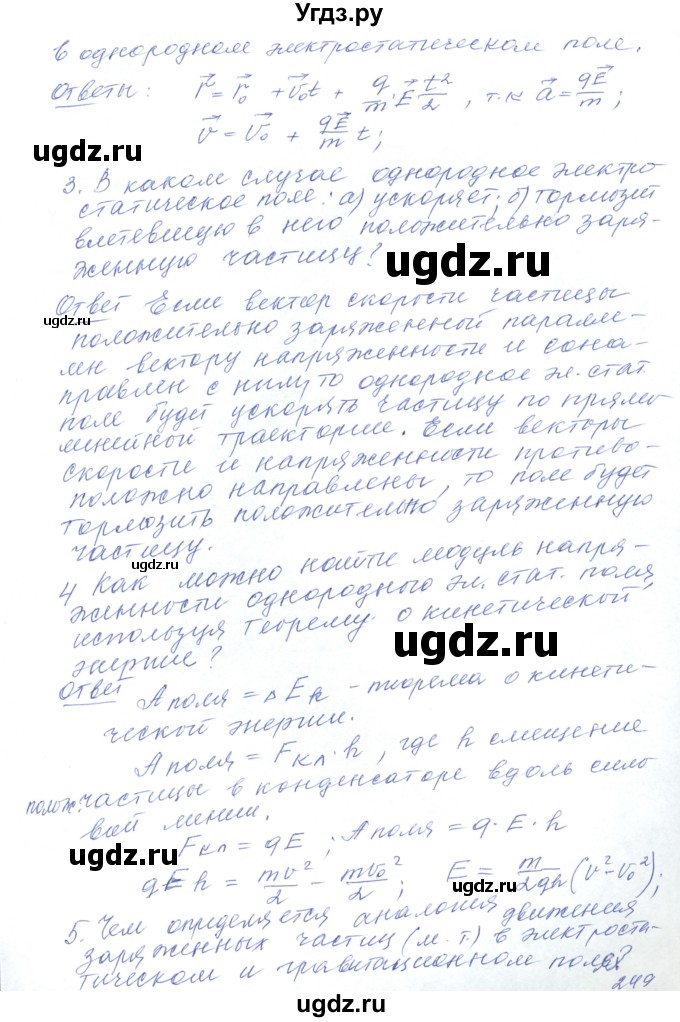 Угдз.ру
в однородном электростатическом поле.
Ответы: r⃗ = r⃗₀ + v⃗₀t + q/m · E⃗ t²/2, т.к a⃗ = qE⃗/m;
v⃗ = v⃗₀ + qE⃗/m t;
3. В каком случае однородное электро-
статическое поле: а) ускоряет; б) тормозит
влетевшую в него положительно заря-
женную частицу?
ugdz.ru
Ответ Если вектор скорости частицы
ugdz.ru
положительно заряженной паралле-
лен вектору напряженности и сона-
правлен с ним, то однородное эл. стат.
поле будет ускорять частицу по прямо
линейной траектории. Если векторы
скорости и напряженности противо-
положно направлены, то поле будет
тормозить положительно заряженную
ugdz.ru
частицу.
4 Как можно найти модуль напря-
женности однородного эл. стат. поля,
используя теорему о кинетической
энергие?
ugdz.ru
Ответ A поля = ΔEк - теорема о кинети-
ческой энергии.
A поля = Fкл · h, где h смещение
полож. частицы в конденсаторе вдоль сило
вой линии.
ugdz.ru
Fкл = qE; A поля = q · E · h
qEh = mv²/2 - mv₀²/2; E = m/2qh (v² - v₀²);
ugdz.ru
5. Чем определяется аналогия движения
заряженных частиц (м. т.) в электроста-
тическом и гравитационном полях?
249
ugdz.ru